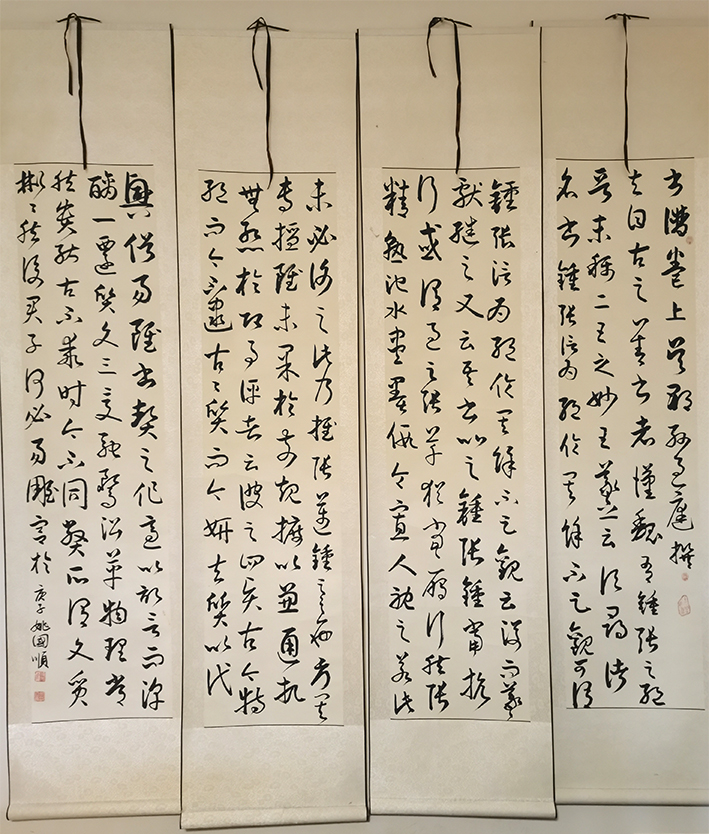 書譜卷上吳郡孫過庭撰
夫自古之善書者漢魏有鍾張之絕
晉末稱二王之妙王羲之云頃尋諸
名書鍾張信為絕倫其餘不足觀可謂
鍾張信為絕倫其餘不足觀云沒而羲
獻繼之又云吾書比之鍾張鍾當抗
行或謂過之張草猶當雁行然張
精熟池水盡墨假令寡人耽之若此
未必謝之此乃推張邁鍾之意也考其
專擅雖未果於前規摭以兼通故
無慙於即事評者云彼之四賢古今特
絕而今不逮古古質而今妍夫質以代
興俗易雖書契之作適以記言而淳
醨一遷質文三變馳騖沿革物理常
然貴能古不乖時今不同弊所謂文質
彬彬然後君子何必易雕宮於
庚子姚國順